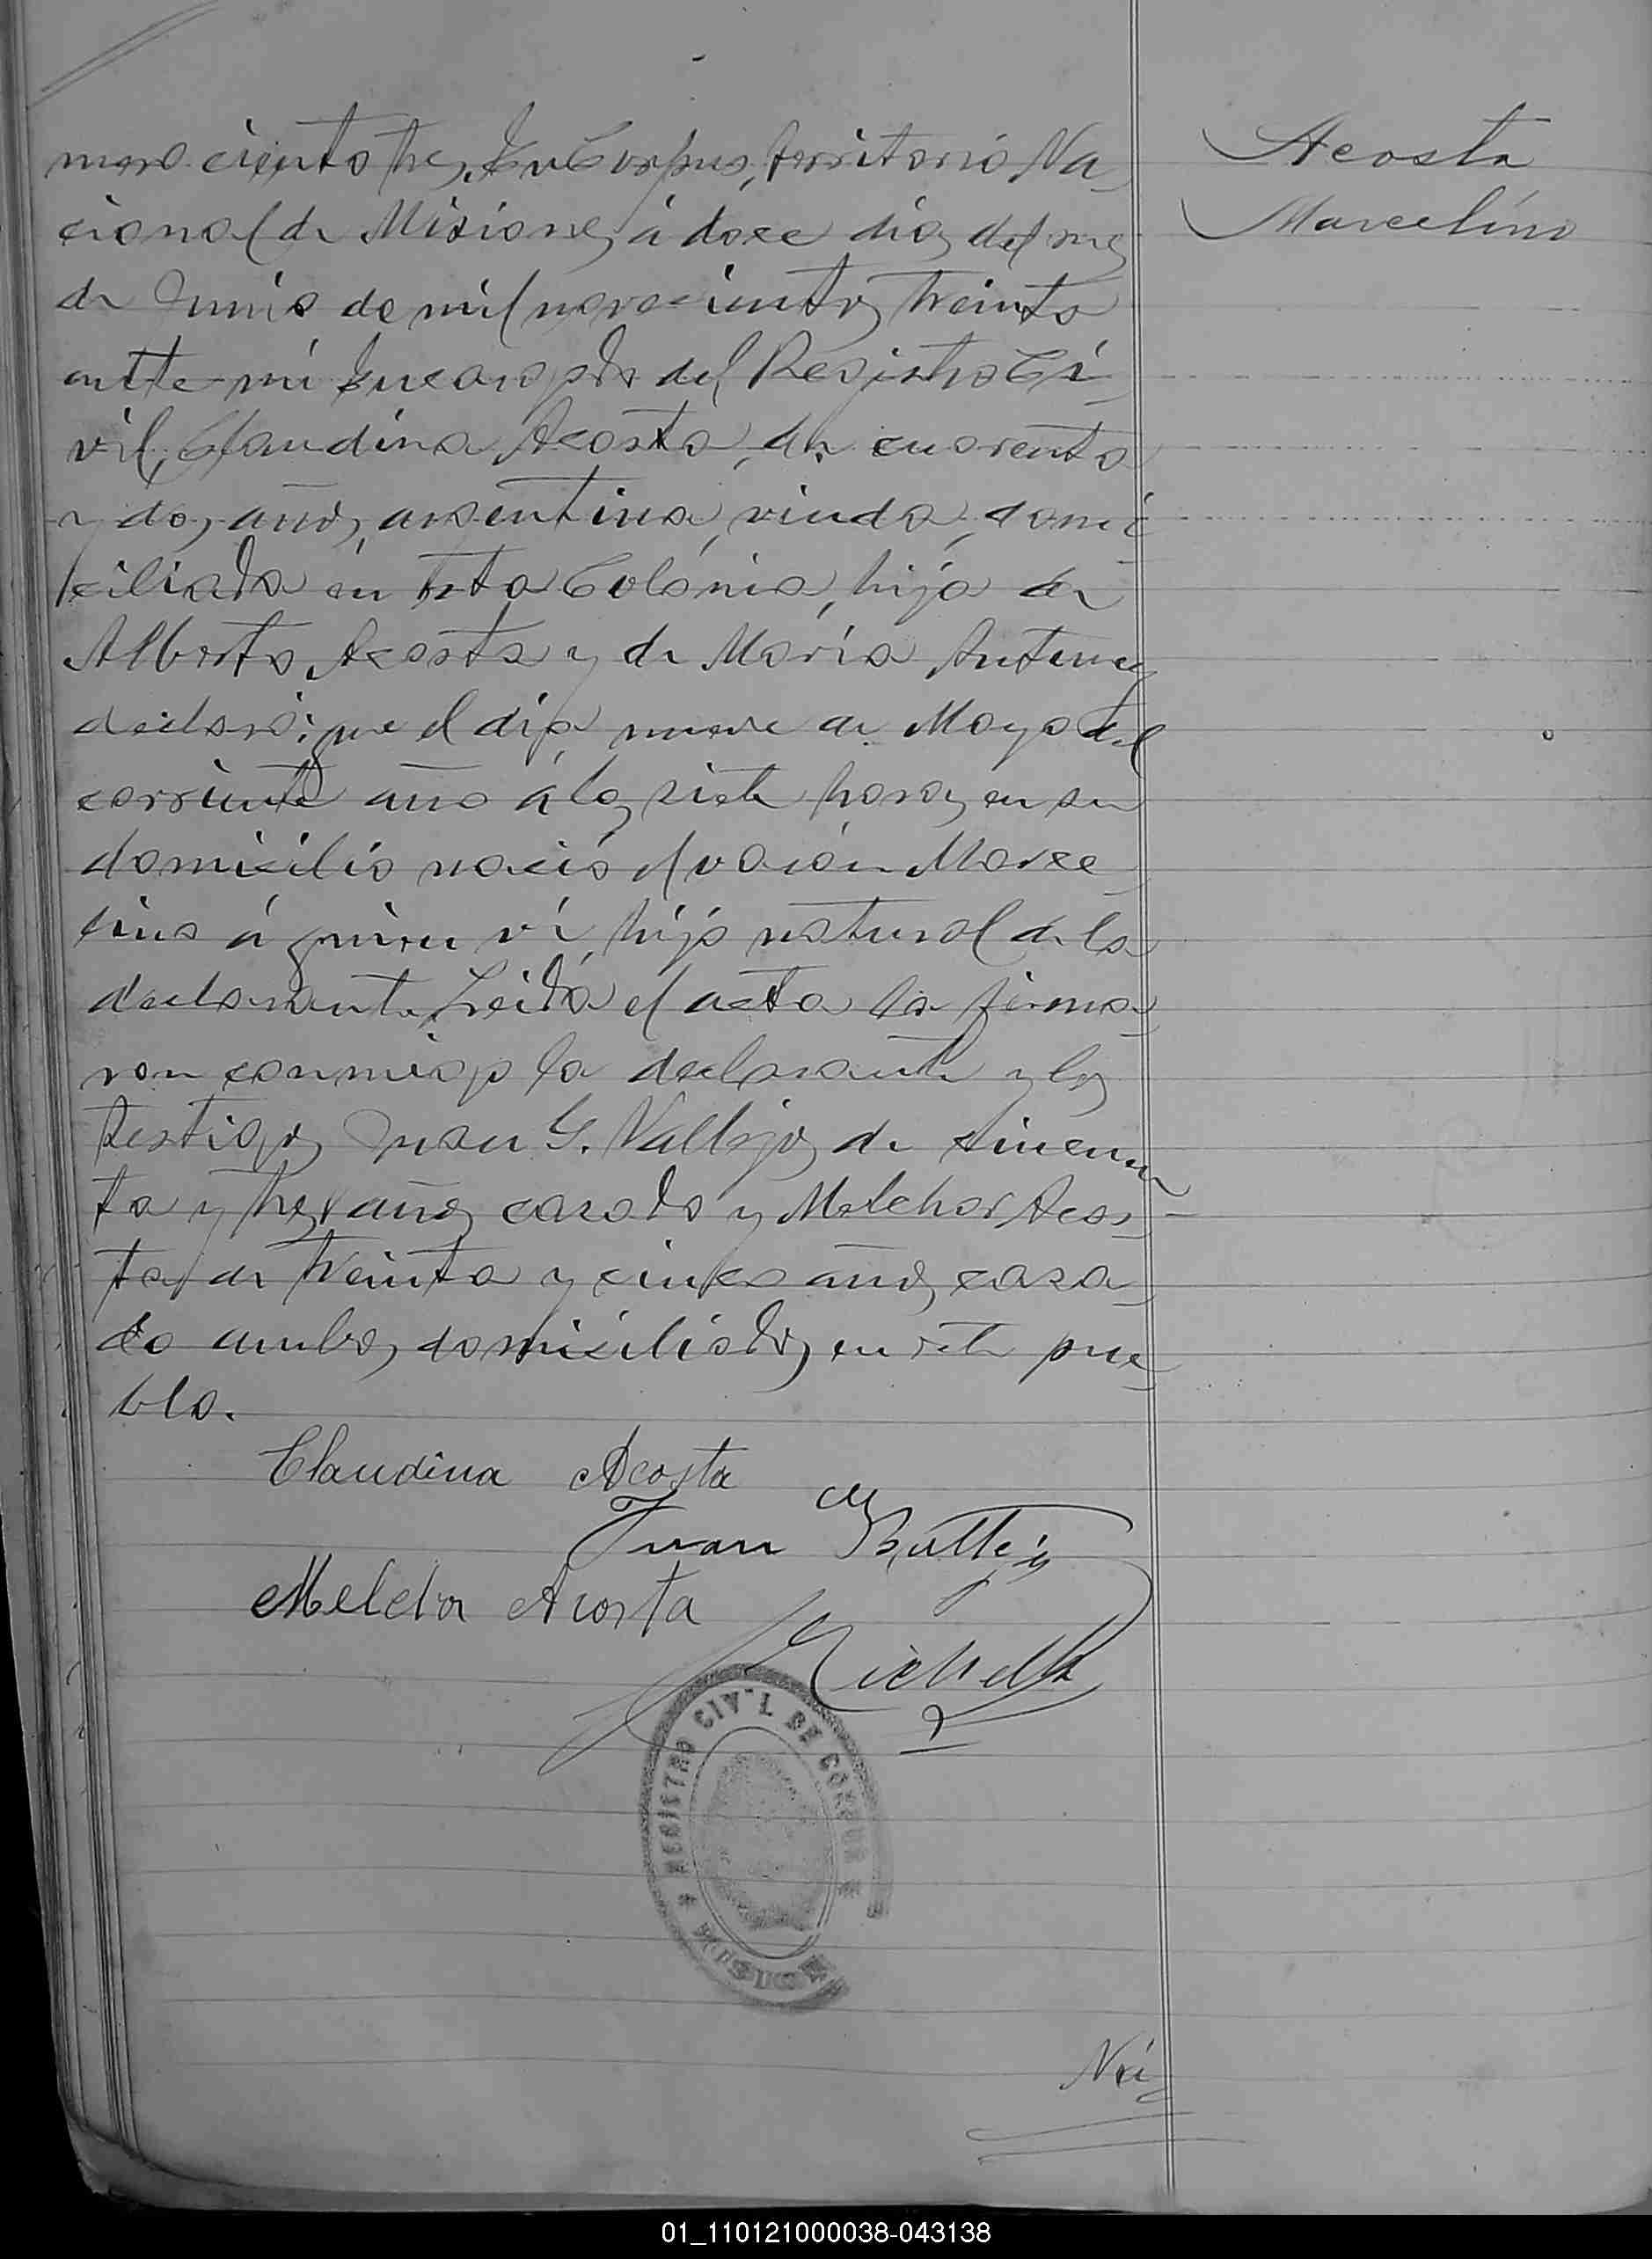 mero ciento tres. En Corpus, Territorio Na-
cional de Misiones, á doce dias del mes
de Junio de mil novecientos treinta
ante mi Encargado del Registro Ci-
vil, Claudina Acosta, de cuarenta
y dos, años, argentina, viuda, domi-
ciliada en esta Colónia, hija de
Alberto Acosta y de Maria Antunez
declaró: que el día nueve de Mayo del
corriente año á las siete horas, en su
domicilio nació el varón Marce-
lino á quien ví, hijo natural de la
declarante. Leida el acta la firma-
ron conmigo la declarante y los
testigos Juan G. Vallejos de sincuen-
ta y tres años casado y Melchor Acos-
ta, de treinta y cinco años, casa-
do ambos, domiciliados en este pue-
blo.
Acosta
Marcelino
Claudina Acosta
Juan
Melchor Acosta
REGISTRO CIVIL DE CORPUS
MISIONES
Nú-
01_110121000038-043138